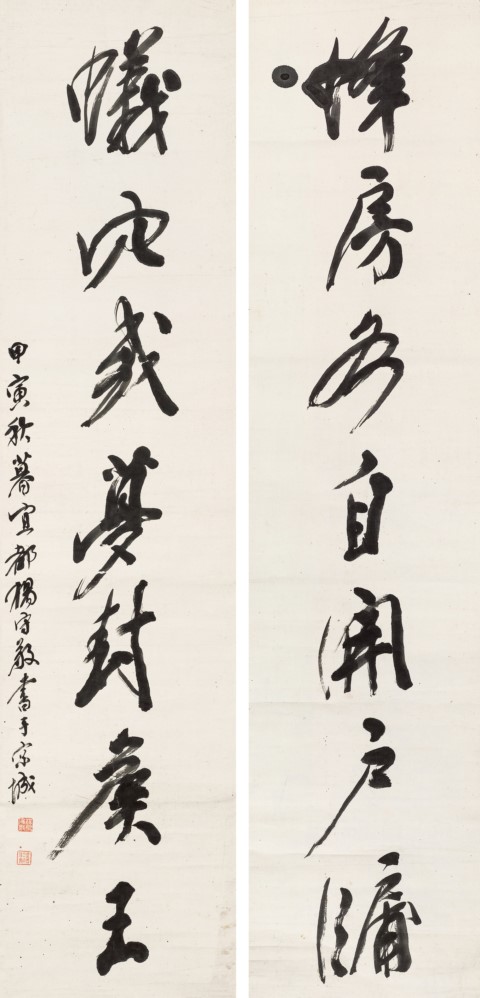 蜂房各自開戶牖
蟻穴或夢封侯王
甲寅秋暮宜都楊守敬書于京城